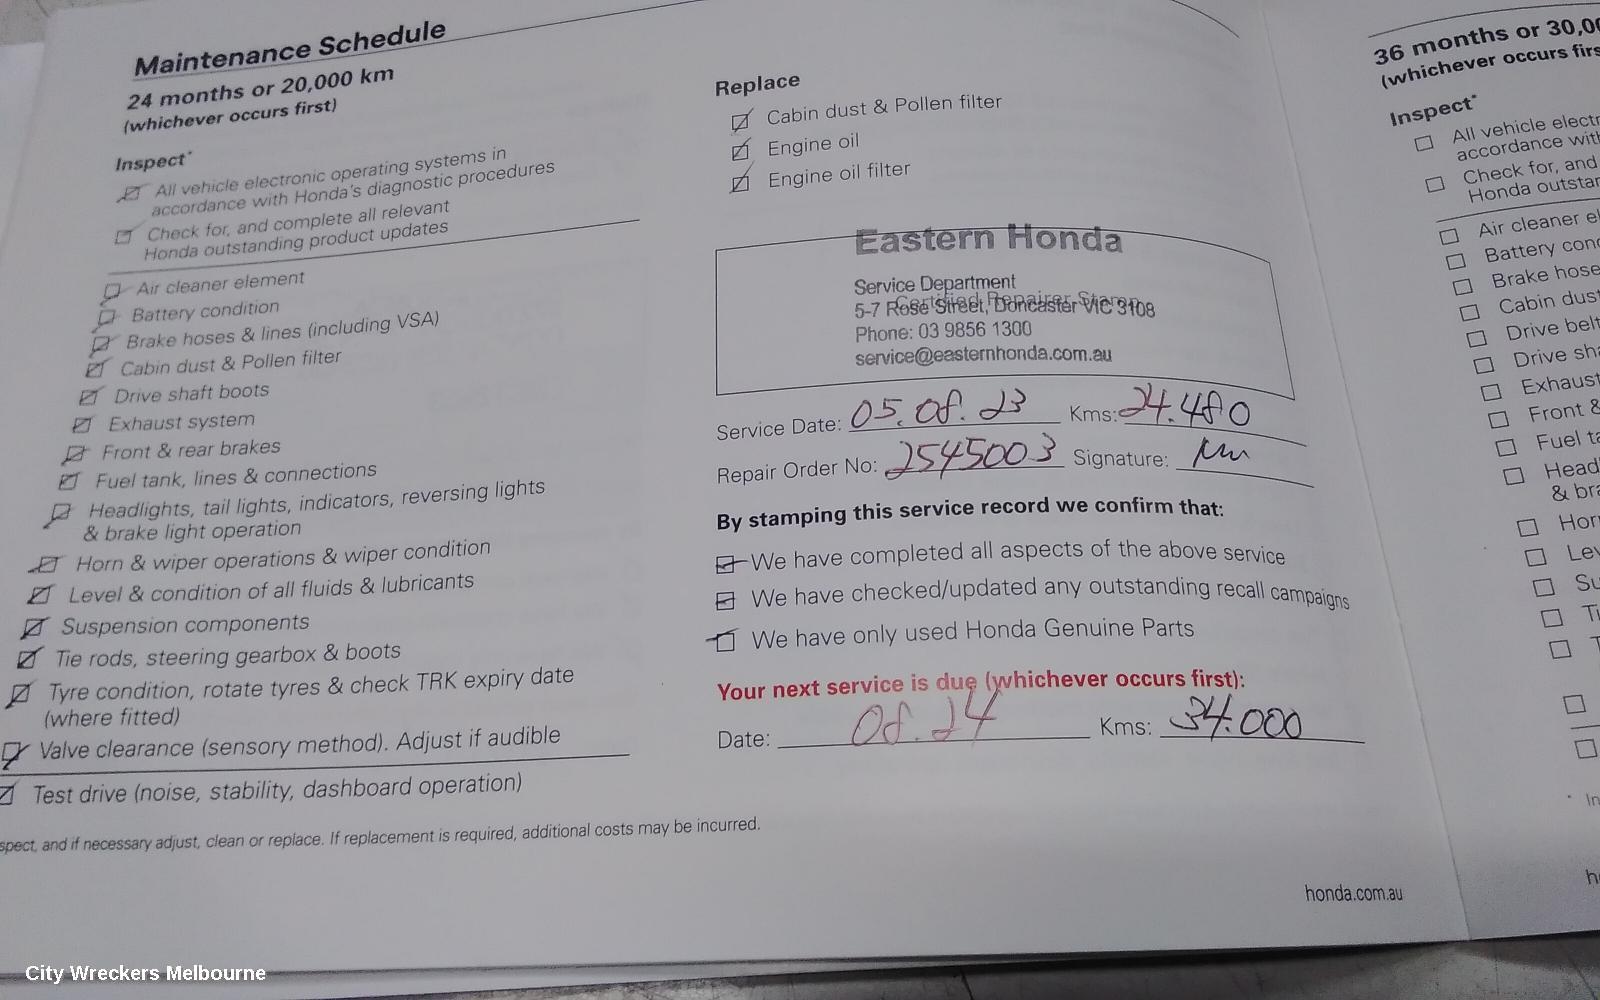 Maintenance Schedule
24 months or 20,000 km
(whichever occurs first)
Inspect*
All vehicle electronic operating systems in
accordance with Honda's diagnostic procedures
Check for, and complete all relevant
Honda outstanding product updates
Air cleaner element
Battery condition
Brake hoses & lines (including VSA)
Cabin dust & Pollen filter
Drive shaft boots
Exhaust system
Front & rear brakes
Fuel tank, lines & connections
Headlights, tail lights, indicators, reversing lights
& brake light operation
Horn & wiper operations & wiper condition
Level & condition of all fluids & lubricants
Suspension components
Tie rods, steering gearbox & boots
Tyre condition, rotate tyres & check TRK expiry date
(where fitted)
Valve clearance (sensory method). Adjust if audible
Test drive (noise, stability, dashboard operation)
spect, and if necessary adjust, clean or replace. If replacement is required, additional costs may be incurred.
Replace
Cabin dust & Pollen filter
Engine oil
Engine oil filter
Eastern Honda
Service Department
Certified Repairer Stamp
5-7 Rose Street, Doncaster VIC 3108
Phone: 03 9856 1300
service@easternhonda.com.au
Service Date: 05.08.23 Kms: 24.480
Repair Order No: 2545003 Signature:
By stamping this service record we confirm that:
We have completed all aspects of the above service
We have checked/updated any outstanding recall campaigns
We have only used Honda Genuine Parts
Your next service is due (whichever occurs first):
Date: 08.24 Kms: 34.000
honda.com.au
36 months or 30,00
(whichever occurs firs
Inspect*
All vehicle electr
accordance with
Check for, and
Honda outstan
Air cleaner el
Battery cond
Brake hose
Cabin dust
Drive belt
Drive sha
Exhaust
Front &
Fuel ta
Head
& bra
Horn
Lev
Su
Ti
T
* In
h
City Wreckers Melbourne